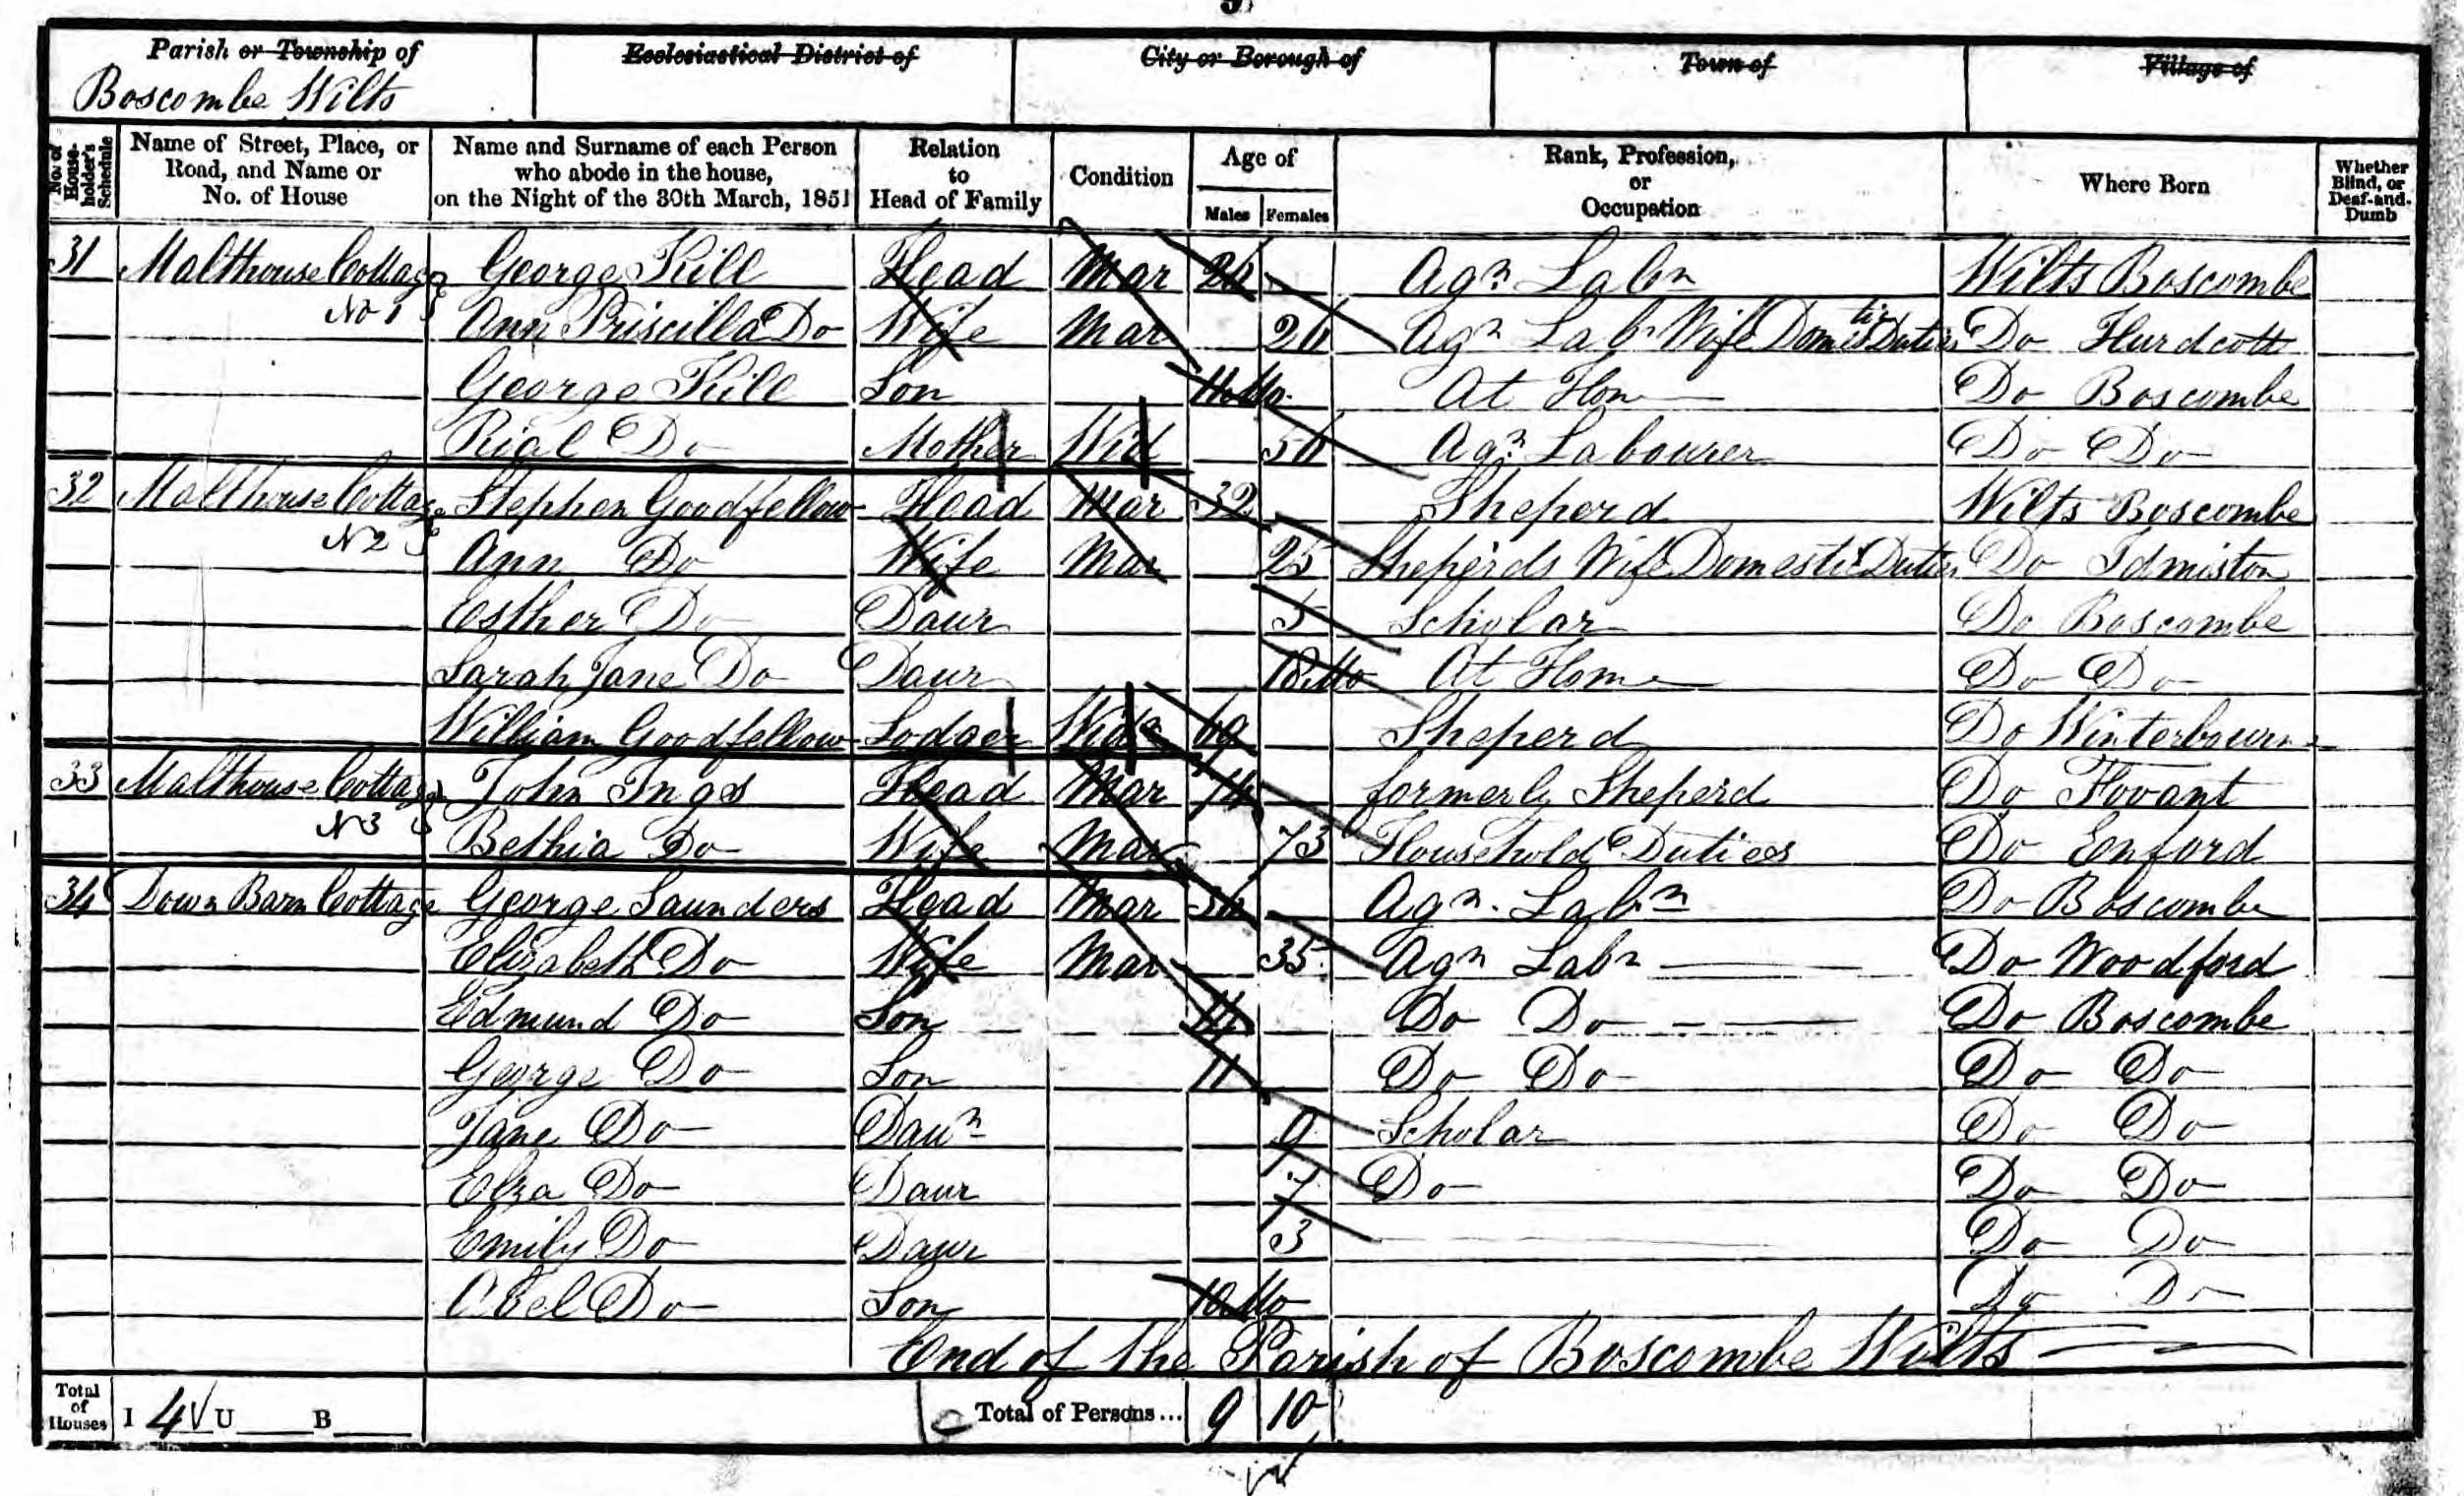 Parish or Township of
Boscombe Wilts
Ecclesiastical District of
City or Borough of
Town of
Village of
No. of House-holder's Schedule
Name of Street, Place, or Road, and Name or No. of House
Name and Surname of each Person who abode in the house, on the Night of the 30th March, 1851
Relation to Head of Family
Condition
Age of
Males Females
Rank, Profession, or Occupation
Where Born
Whether Blind, or Deaf-and-Dumb
31 Malthouse Cottage George Kill Head Mar Agr Labr Wilts Boscombe
No 1 Ann Priscilla Do Wife Mar Agr Labr Wife Domestic Duties Do Hurdcott
George Kill Son 11 Mo At Hom Do Boscombe
Rial Do Mother Wid Agr Labourer Do Do
32 Malthouse Cottage Stephen Goodfellow Head Mar 32 Sheperd Wilts Boscombe
N 2 Ann Do Wife Mar 25 Sheperds Wife Domestic Duties Do Idmiston
Esther Do Daur 5 Scholar Do Boscombe
Sarah Jane Do Daur Mo At Home Do Do
William Goodfellow Lodger 69 Sheperd Do Winterbourn
33 Malthouse Cottage John Ings Head Mar 74 formerly Sheperd Do Fovant
N 3 Bethia Do Wife Mar 73 Household Duties Do Enford
34 Down Barn Cottage George Saunders Head Mar Agr. Labr Do Boscombe
Elizabeth Do Wife Mar 35 Agr Labr Do Woodford
Edmund Do Son 14 Do Do Do Boscombe
George Do Son 11 Do Do Do Do
Jane Do Daur 9 Scholar Do Do
Elza Do Daur 7 Do Do Do
Emily Do Daur 3 Do Do
Abel Do Son 10 Mo Do Do
End of the Parish of Boscombe Wilts
Total of Houses I 4 U B Total of Persons... 9 10